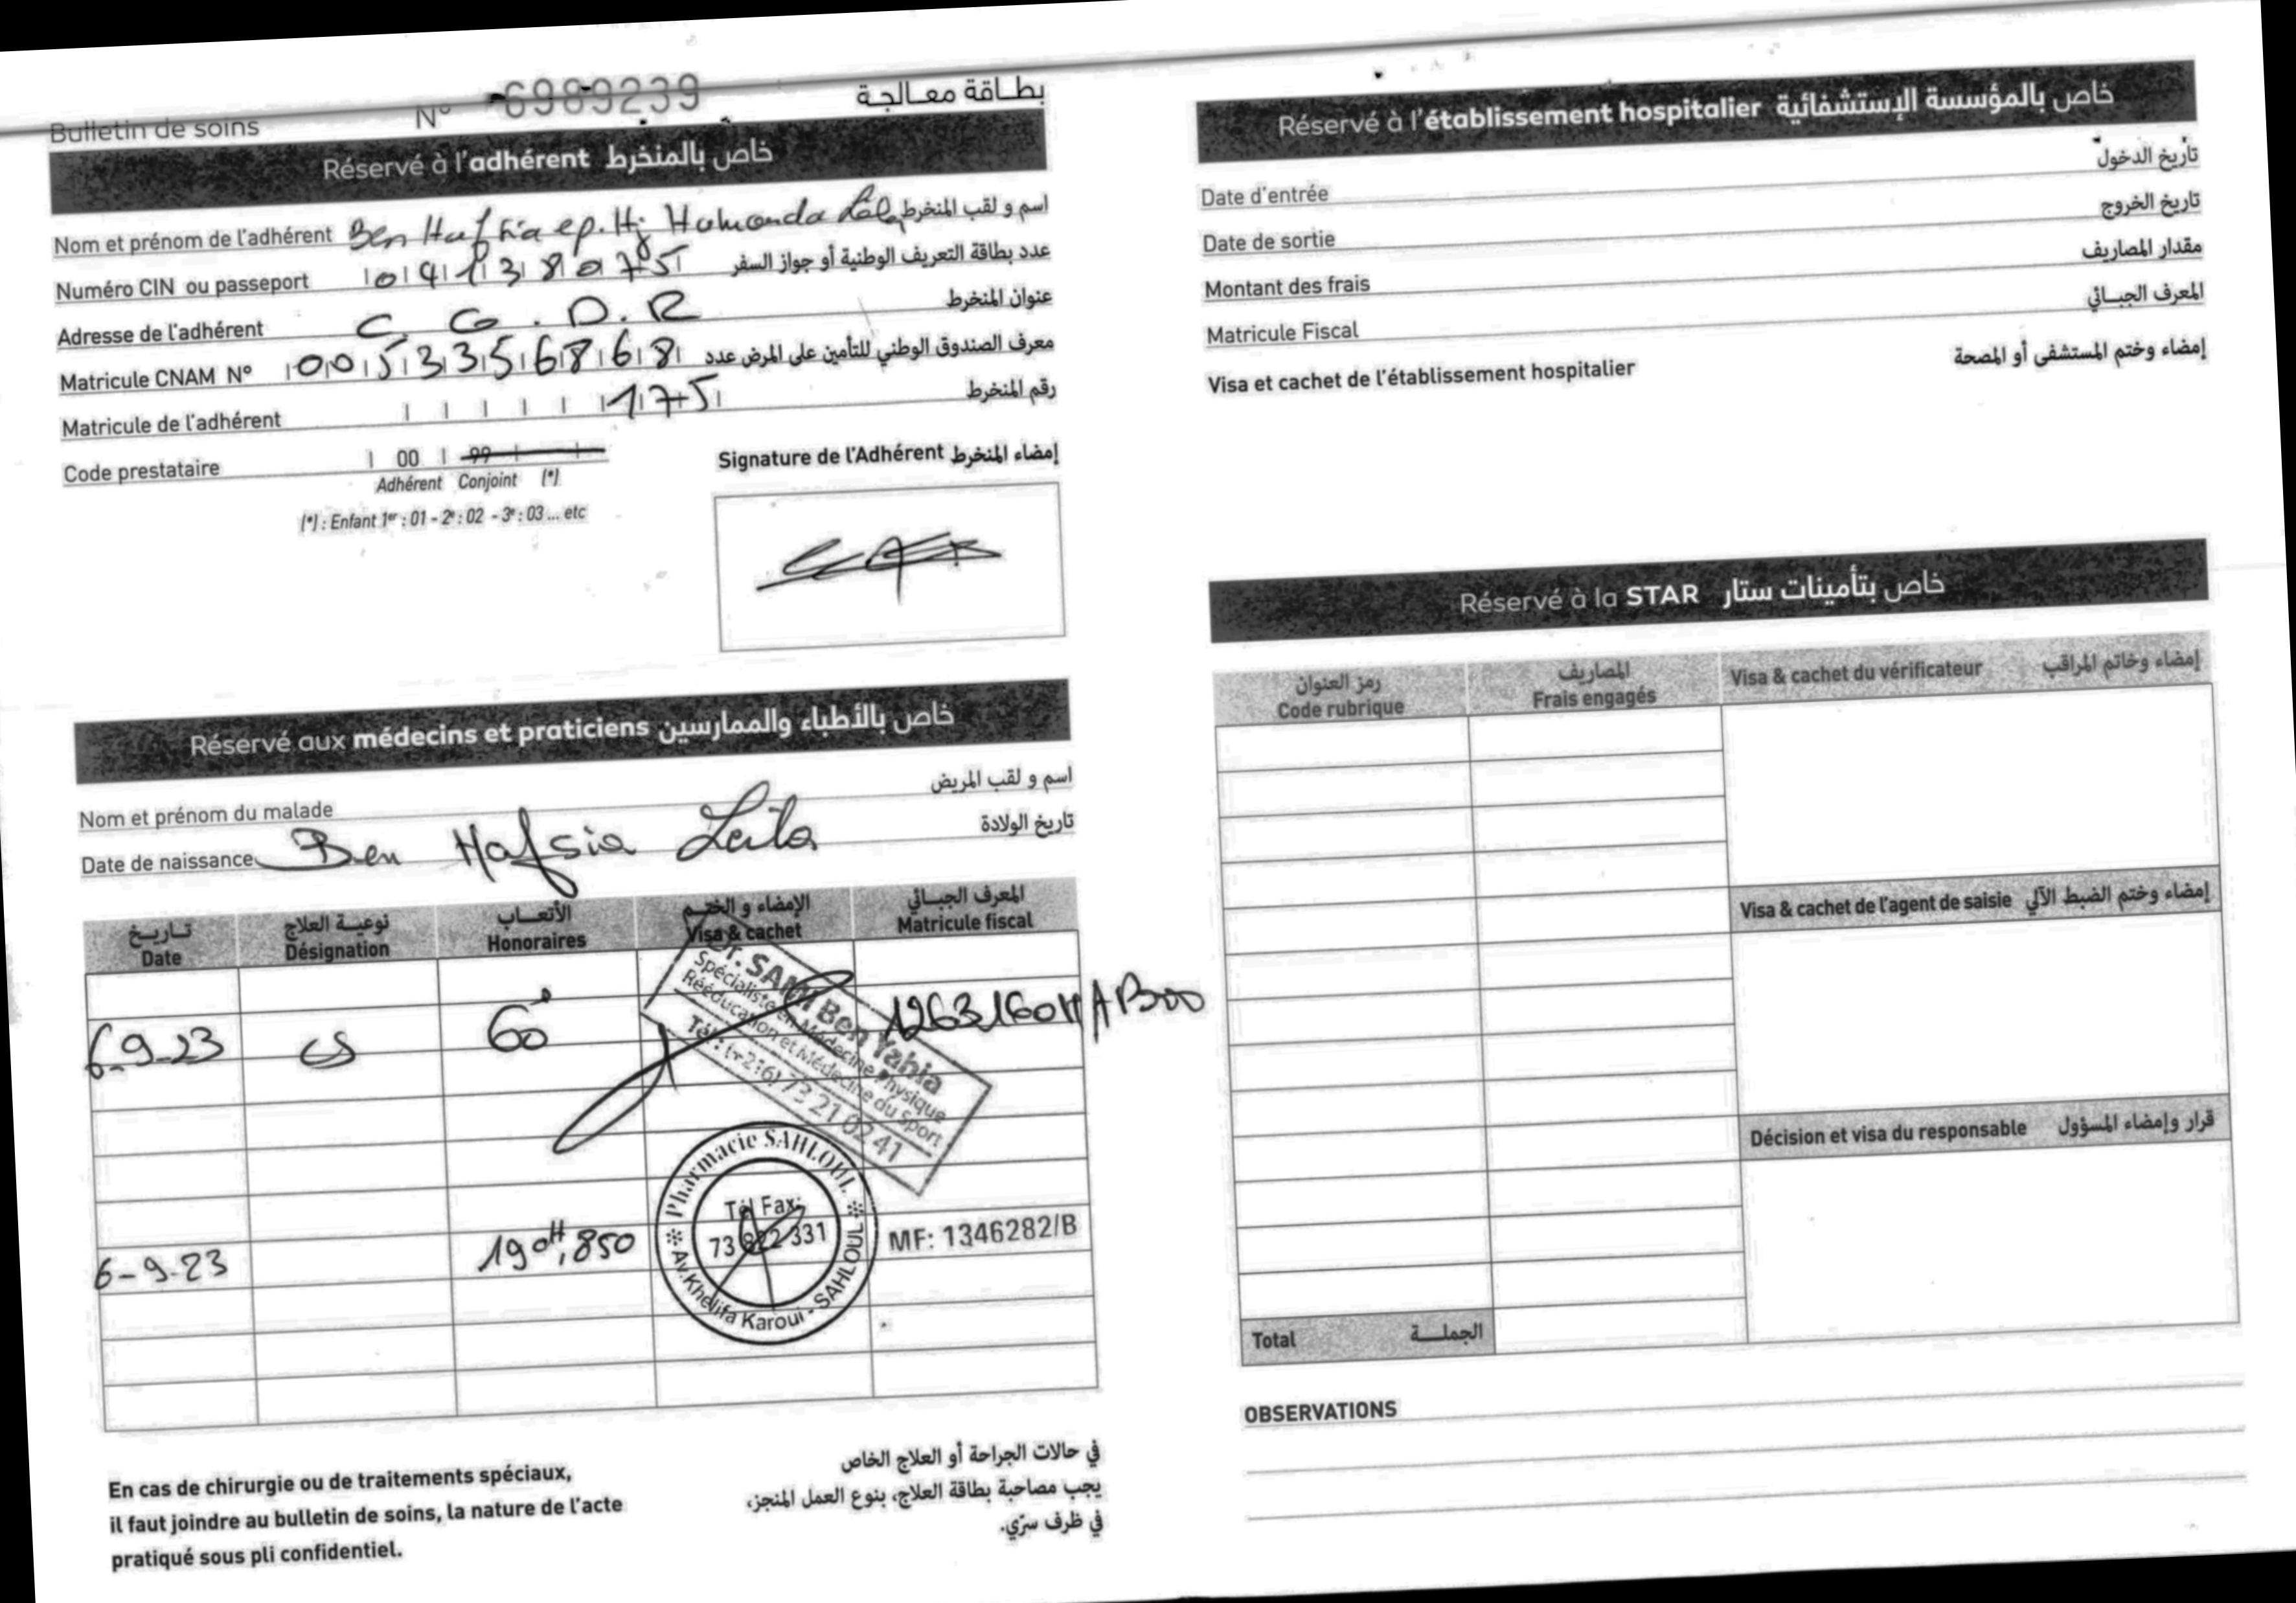 Bulletin de soins N° 6989239 بطاقة معالجة
Réservé à l'adhérent خاص بالمنخرط
Nom et prénom de l'adhérent Ben Hafsia ep. Hj Hamouda اسم و لقب المنخرط
Numéro CIN ou passeport عدد بطاقة التعريف الوطنية أو جواز السفر
Adresse de l'adhérent C. G. D. R عنوان المنخرط
Matricule CNAM N° 0053356868 معرف الصندوق الوطني للتأمين على المرض عدد
Matricule de l'adhérent 175 رقم المنخرط
Code prestataire 00 99
Adhérent Conjoint (*)
(*) : Enfant 1er : 01 - 2e : 02 - 3e : 03 ... etc
Signature de l'Adhérent إمضاء المنخرط
Réservé aux médecins et praticiens خاص بالأطباء والممارسين
Nom et prénom du malade اسم و لقب المريض
Date de naissance Ben Hafsia Leila تاريخ الولادة
تاريخ نوعية العلاج الأتعاب الإمضاء و الختم المعرف الجبائي
Date Désignation Honoraires Visa & cachet Matricule fiscal
6-9-23 CS 60
Dr. SAMI Ben Yahia
Spécialiste en Médecine Physique
Rééducation et Médecine du Sport
Tél : (+216) 73 21 02 41
6-9-23 19dt,850 MF: 1346282/B
Pharmacie SAHLOUL
Tél Fax:
73 822 331
Av. Khelifa Karoui - SAHLOUL
En cas de chirurgie ou de traitements spéciaux,
il faut joindre au bulletin de soins, la nature de l'acte
pratiqué sous pli confidentiel.
في حالات الجراحة أو العلاج الخاص
يجب مصاحبة بطاقة العلاج، بنوع العمل المنجز،
في ظرف سرّي.
Réservé à l'établissement hospitalier خاص بالمؤسسة الإستشفائية
Date d'entrée تاريخ الدخول
Date de sortie تاريخ الخروج
Montant des frais مقدار المصاريف
Matricule Fiscal المعرف الجبائي
Visa et cachet de l'établissement hospitalier إمضاء وختم المستشفى أو المصحة
Réservé à la STAR خاص بتأمينات ستار
رمز العنوان المصاريف
Code rubrique Frais engagés Visa & cachet du vérificateur إمضاء وخاتم المراقب
Visa & cachet de l'agent de saisie إمضاء وختم الضبط الآلي
Décision et visa du responsable قرار وإمضاء المسؤول
Total الجملة
OBSERVATIONS